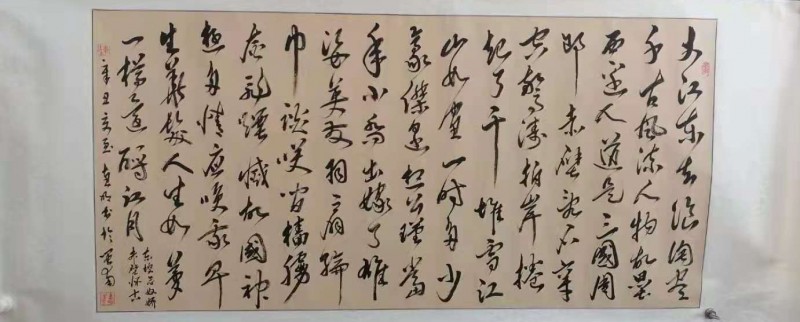 大江东去浪淘尽
千古风流人物故垒
西边人道是三國周
郎赤壁乱石穿
空惊涛拍岸捲
起了千堆雪江
山如画一时多少
豪傑遥想公瑾當
年小乔出嫁了雄
姿英发羽扇纶
巾谈笑间樯橹
灰飞烟灭故國神
游多情应笑我早
生华髮人生如梦
一樽还酹江月
东坡念奴娇
赤壁怀古
辛丑
书於